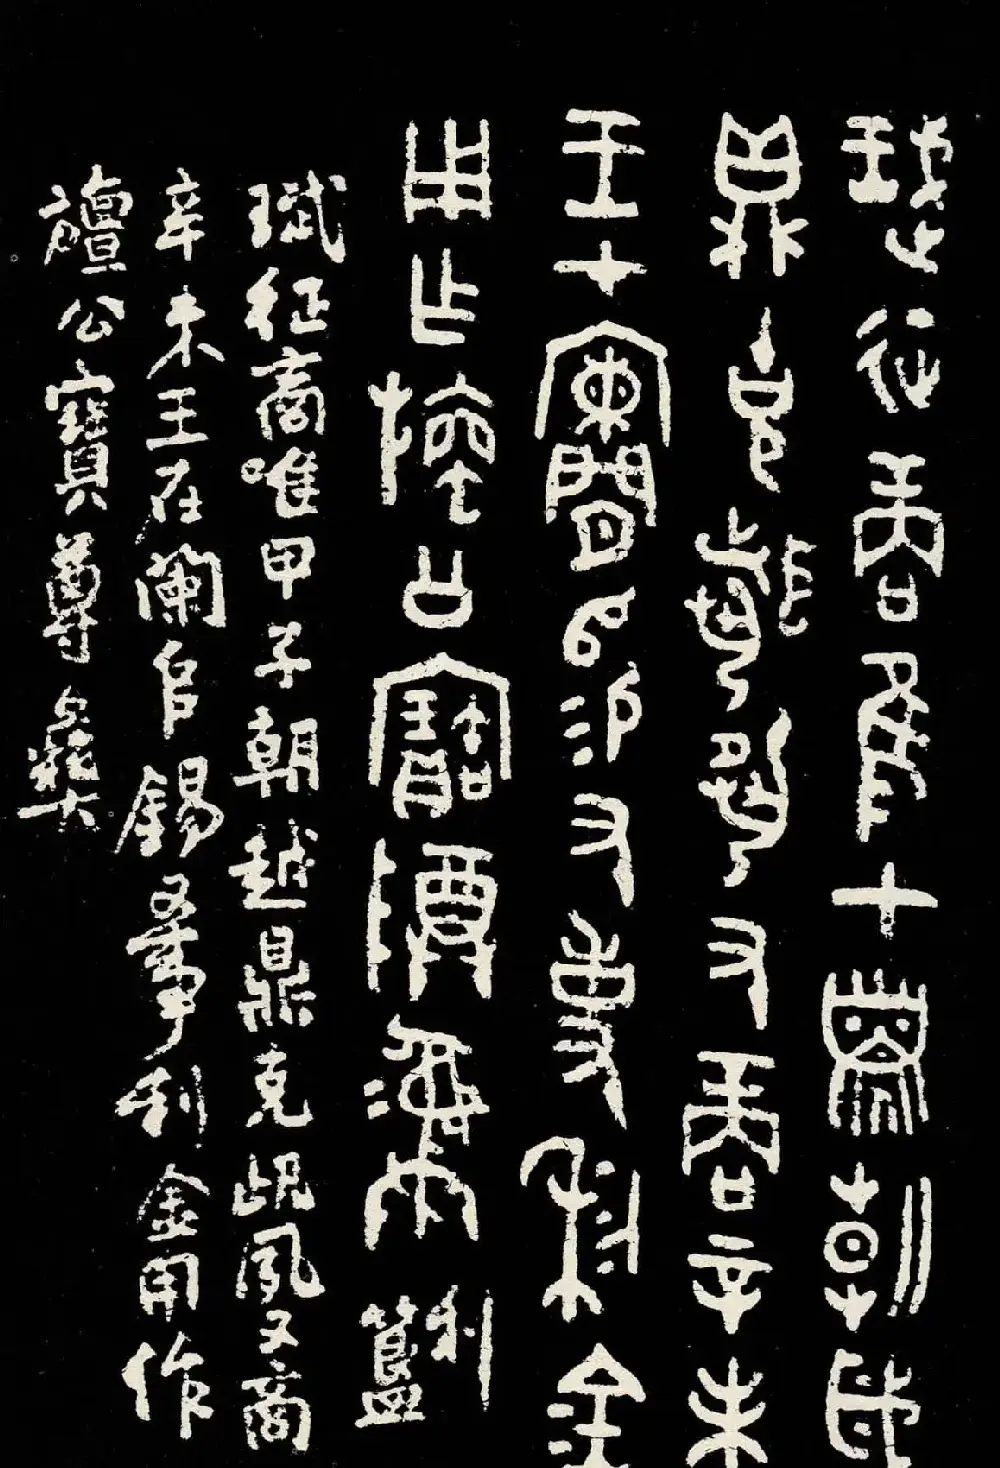 珷征商隹甲子朝歲
鼎克昏夙又商辛未
王才闌𠂤易又事利金
用乍旜公寶尊彝 利簋
珷征商唯甲子朝越鼎克昏夙又商
辛未王在闌𠂤錫又事利金用作
旜公寶尊彝